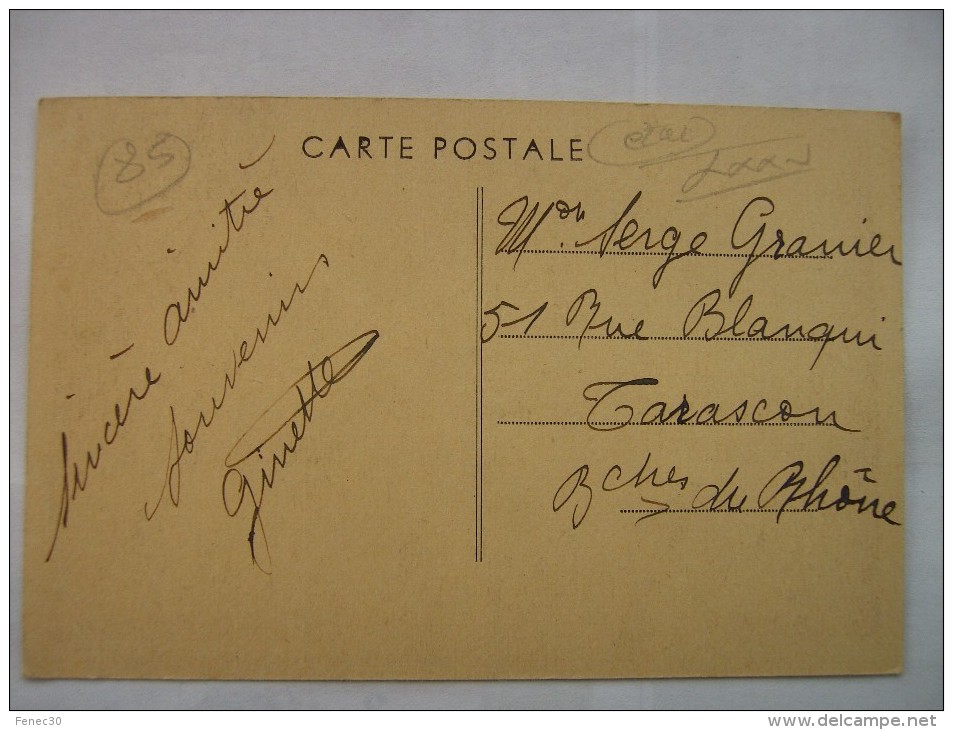 85
CARTE POSTALE
Sincère amitié
Souvenirs
Ginette
Mon Serge Granier
51 Rue Blanqui
Tarascon
Bches du Rhône
Fenec30
www.delcampe.net